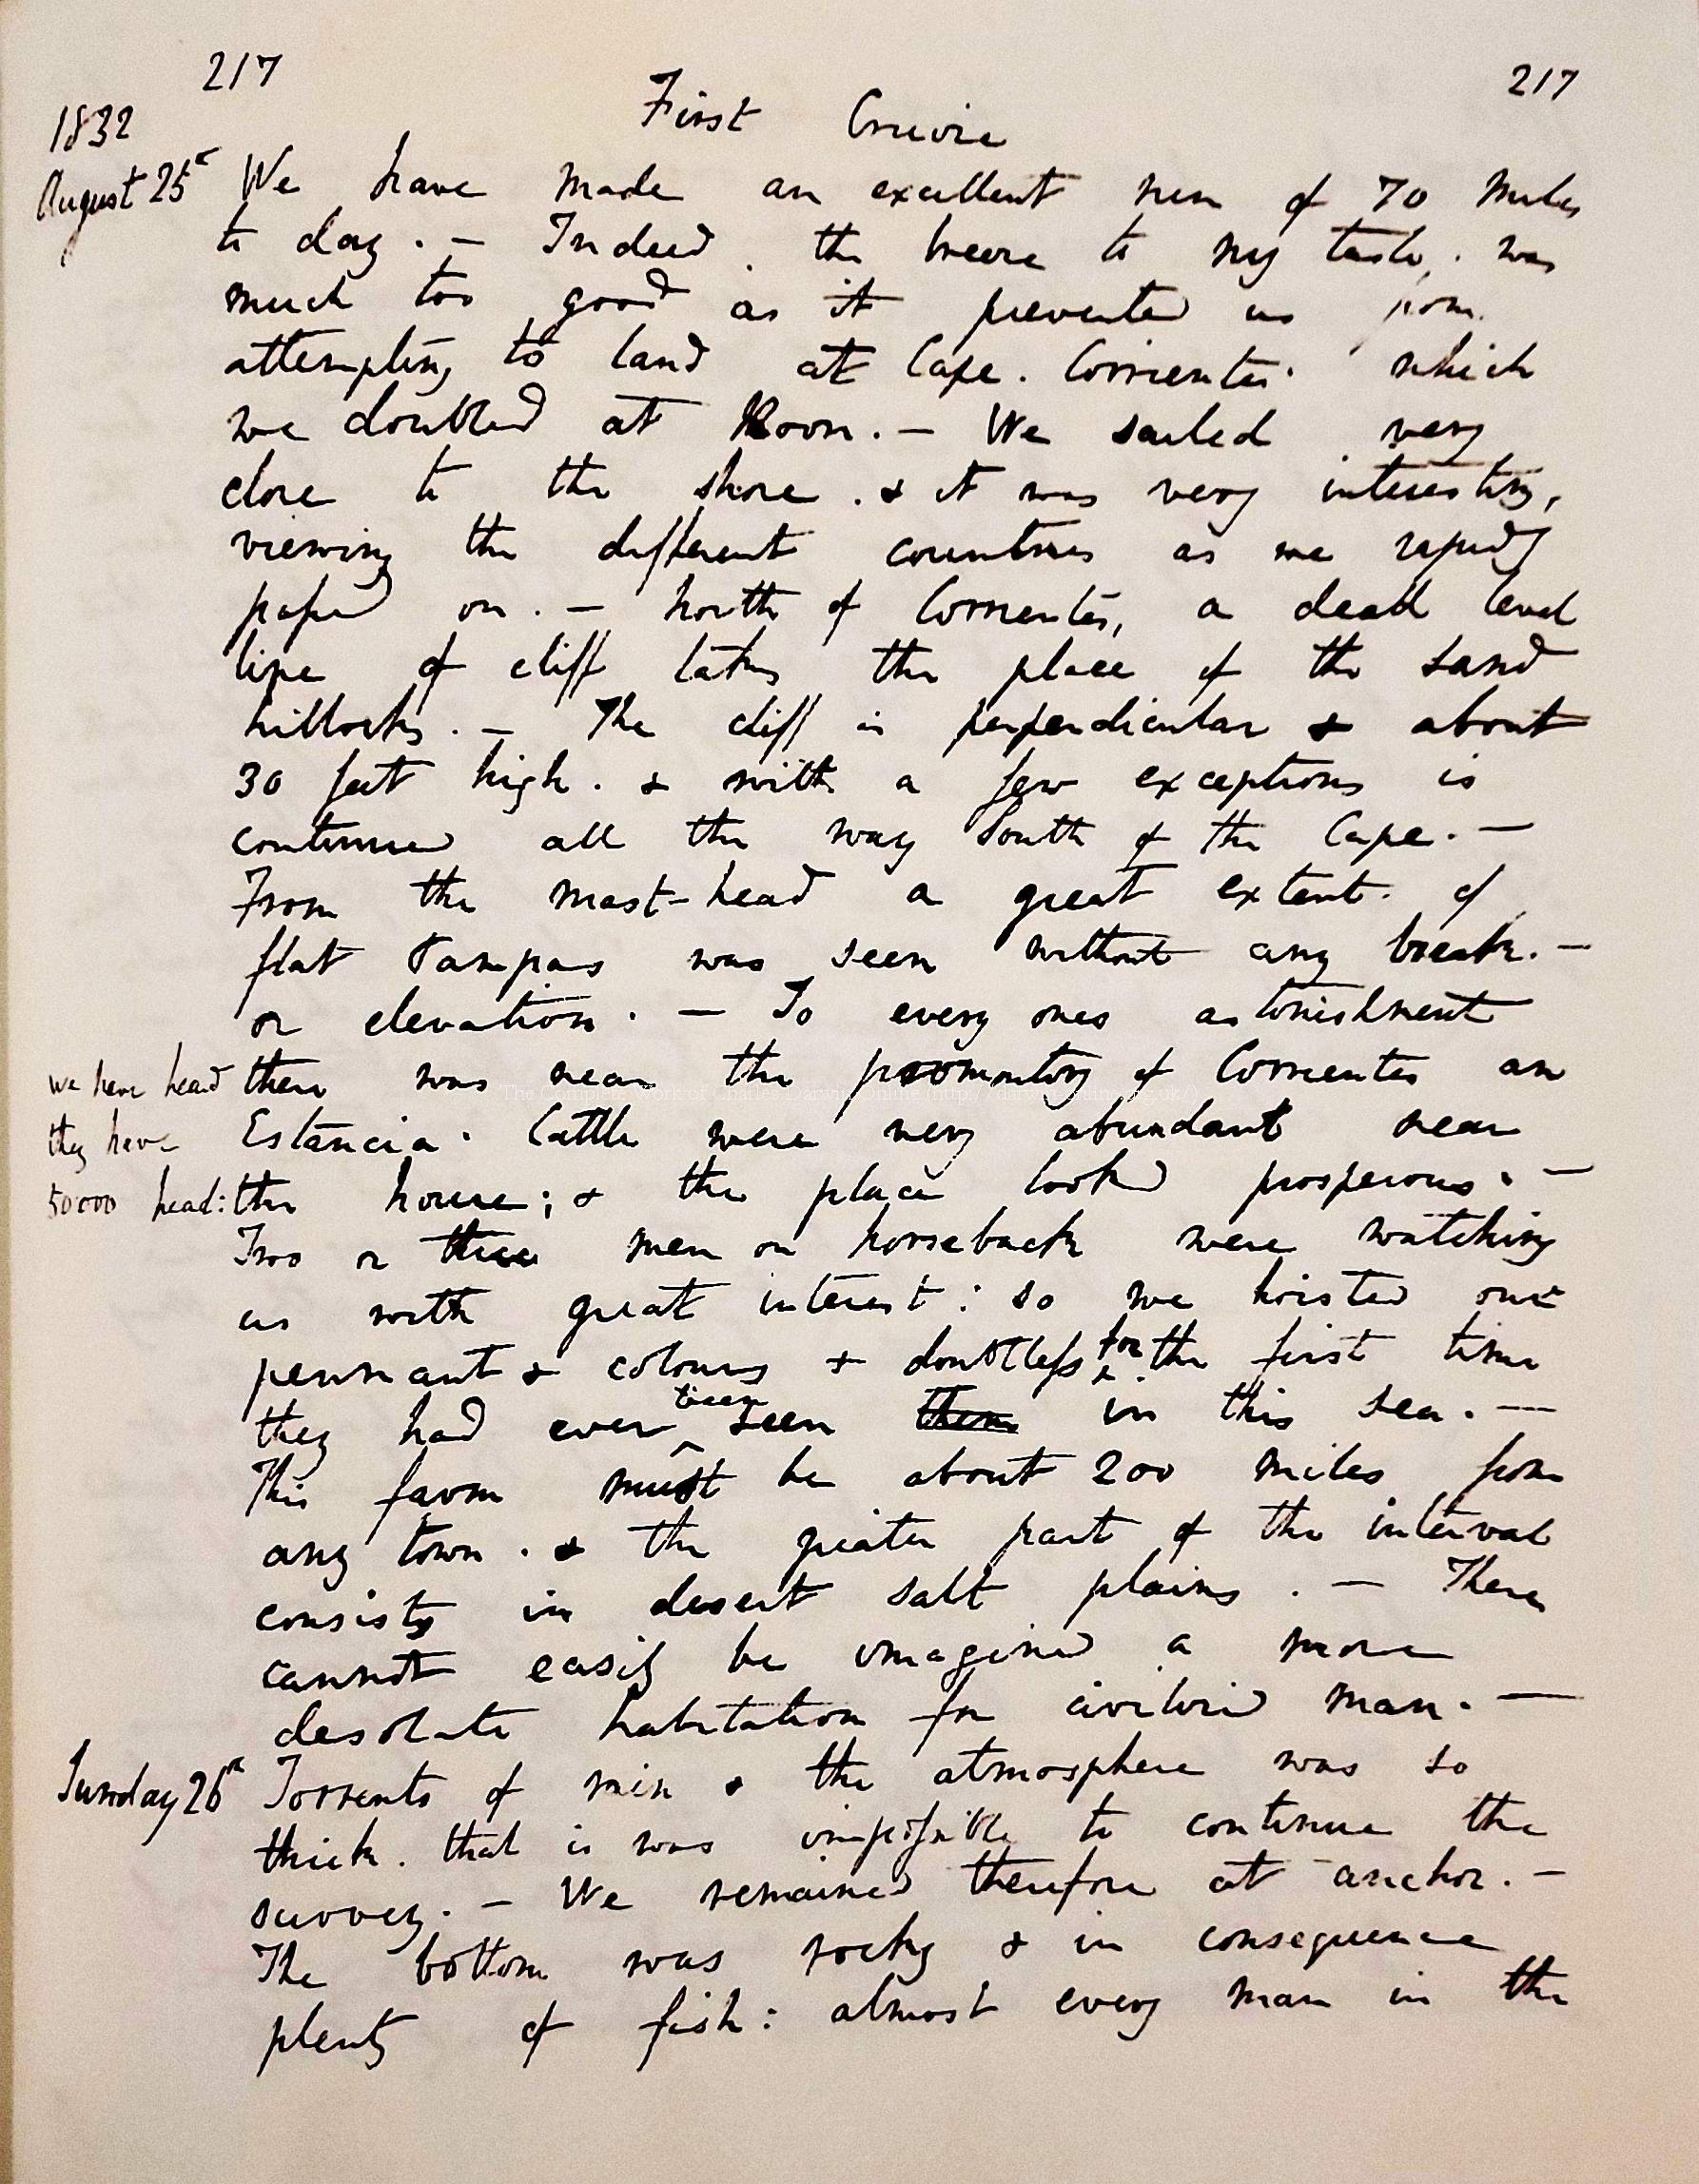 217 217
First Cruize
1832
August 25th We have made an excellent run of 70 miles
to day. — Indeed. the breeze to my taste, was
much too good as it prevented us from
attempting to land at Cape. Corrientes. which
we doubled at Noon. — We sailed very
close to the shore. & it was very interesting,
viewing the different countries as we rapidly
passed on. — North of Corrientes, a dead level
line of cliff takes the place of the sand
hillocks. — The cliff is perpendicular & about
30 feet high. & with a few exceptions is
continued all the way South of the Cape. —
From the mast-head a great extent. of
flat Pampas was seen without any break. —
or elevation. — To every ones astonishment
we have heard there was near the promontory of Corrientes an
they have Estancia. Cattle were very abundant near
50000 head: the house; & the place looked prosperous. —
Two or three men on horseback were watching
us with great interest: so we hoisted our
pennant & colours & doubtless for the first time
they had ever been seen them in this sea. —
This farm must be about 200 miles from
any town. & the greater part of the interval
consists in desert salt plains. — There
cannot easily be imagined a more
desolate habitation for civilized man. —
Sunday 26th Torrents of rain & the atmosphere was so
thick. that is was impossible to continue the
survey. — We remained therefore at anchor. —
The bottom was rocky & in consequence
plenty of fish: almost every man in the